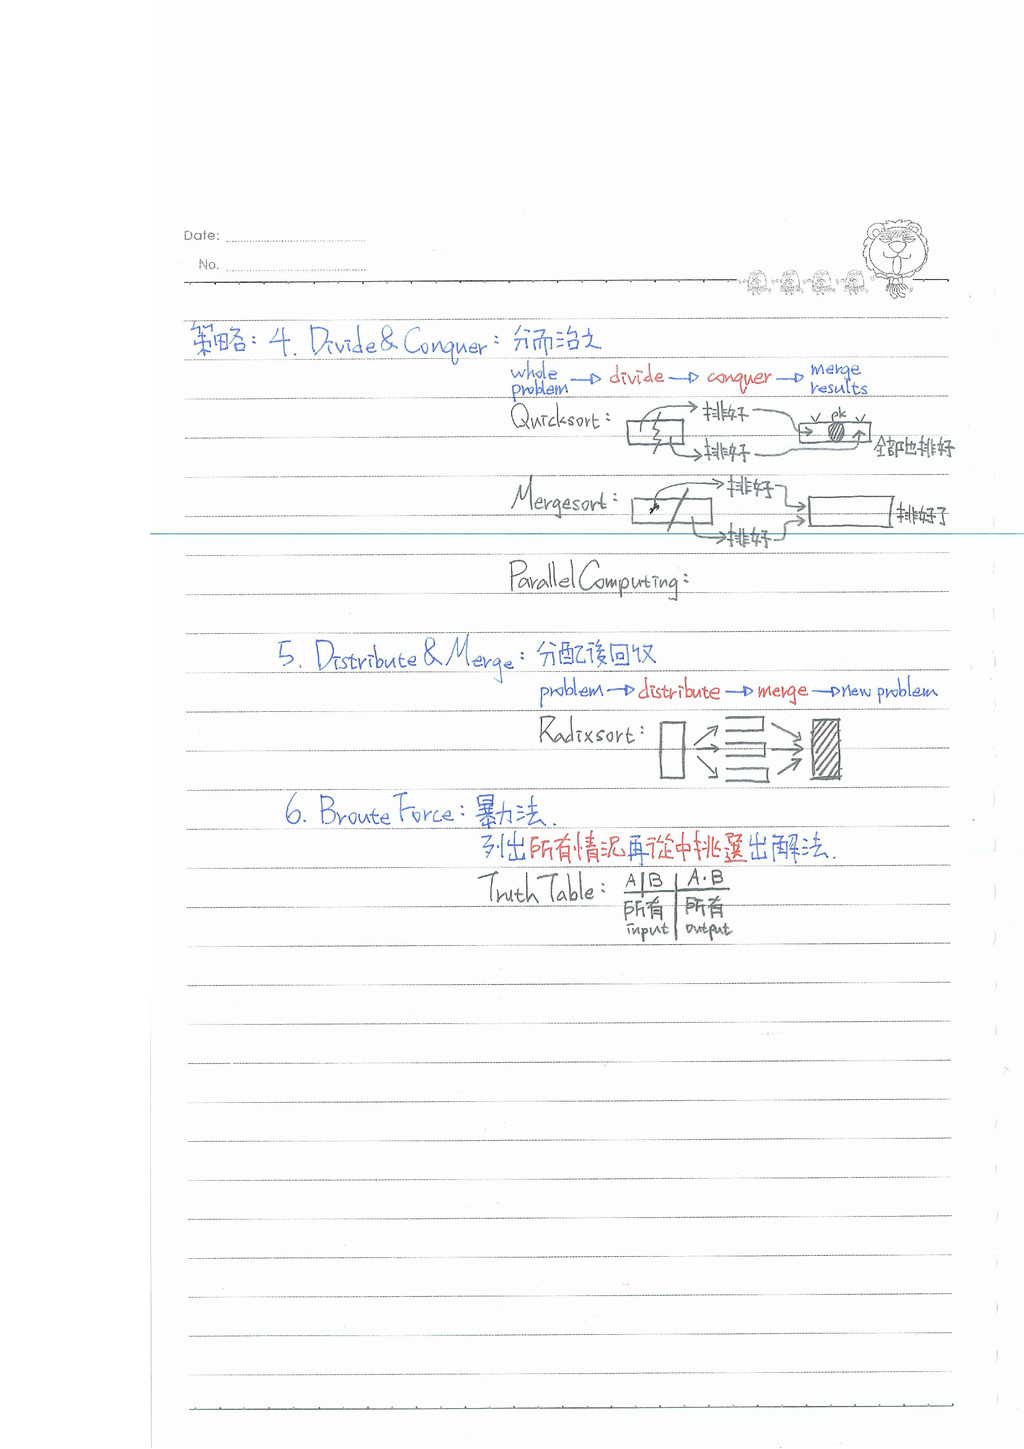 Date:
No.
策略: 4. Divide & Conquer: 分而治之
whole problem → divide → conquer → merge results
Quicksort: 排好 pk
排好 全部也排好
Mergesort: 排好
排好 排好了
Parallel Computing:
5. Distribute & Merge: 分配後回收
problem → distribute → merge → new problem
Radixsort:
6. Broute Force: 暴力法.
列出所有情況再從中挑選出解法.
Truth Table: A B A·B
所有 所有
input output